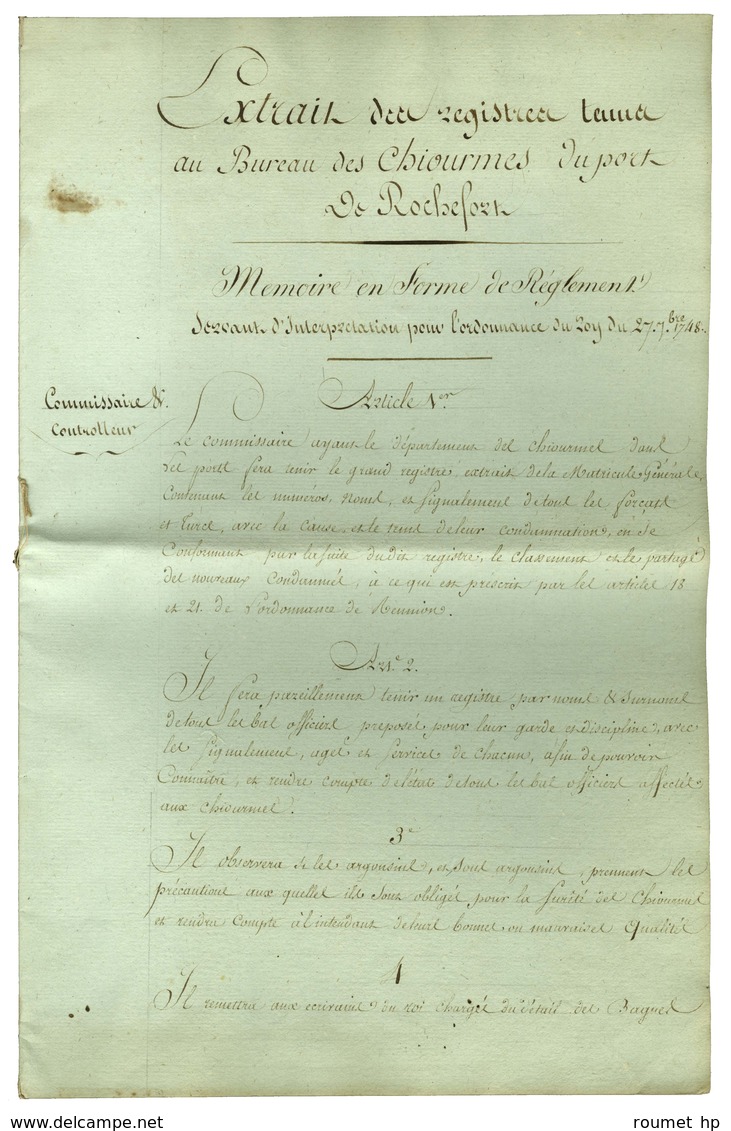 Extrait des registres tenus
au Bureau des Chiourmes du port
De Rochefort
Mémoire en Forme de Réglement
Servant d'Interprétation pour l'ordonnance du Roy du 27. 7.bre 1748.
Commissaire &
Controlleur
Article 1er.
Le commissaire ayant le département des chiourmes dans
les ports fera tenir le grand registre, extrait de la Matricule Générale
Contenant les numéros, noms, et signalement de tous les forçats
et Turcs, avec la cause, et le tems de leur condamnation, en se
Conformant par la suite dudit registre, le classement et le partage
des nouveaux Condamnés, à ce qui est préscrit par les articles 18
et 21. de l'ordonnance de Réunion.
Art.e 2.
Il fera pareillement tenir un registre par noms & surnoms
de tous les bas officiers preposés pour leur garde et discipline, avec
les signalement, ages et services de chacun, afin de pouvoir
Connaître, et rendre compte de l'état de tous les bas officiers affectés
aux chiourmes.
3e
Il observera si les argousins, et sous argousins, prennent les
précautions aux quelles ils sont obligés pour la sureté des Chiourmes
et rendra compte à l'intendant de leurs bonnes ou mauvaises qualités
4
Il remettra aux ecrivains du roi chargés du détail des Bagnes
roumet hp
www.delcampe.net